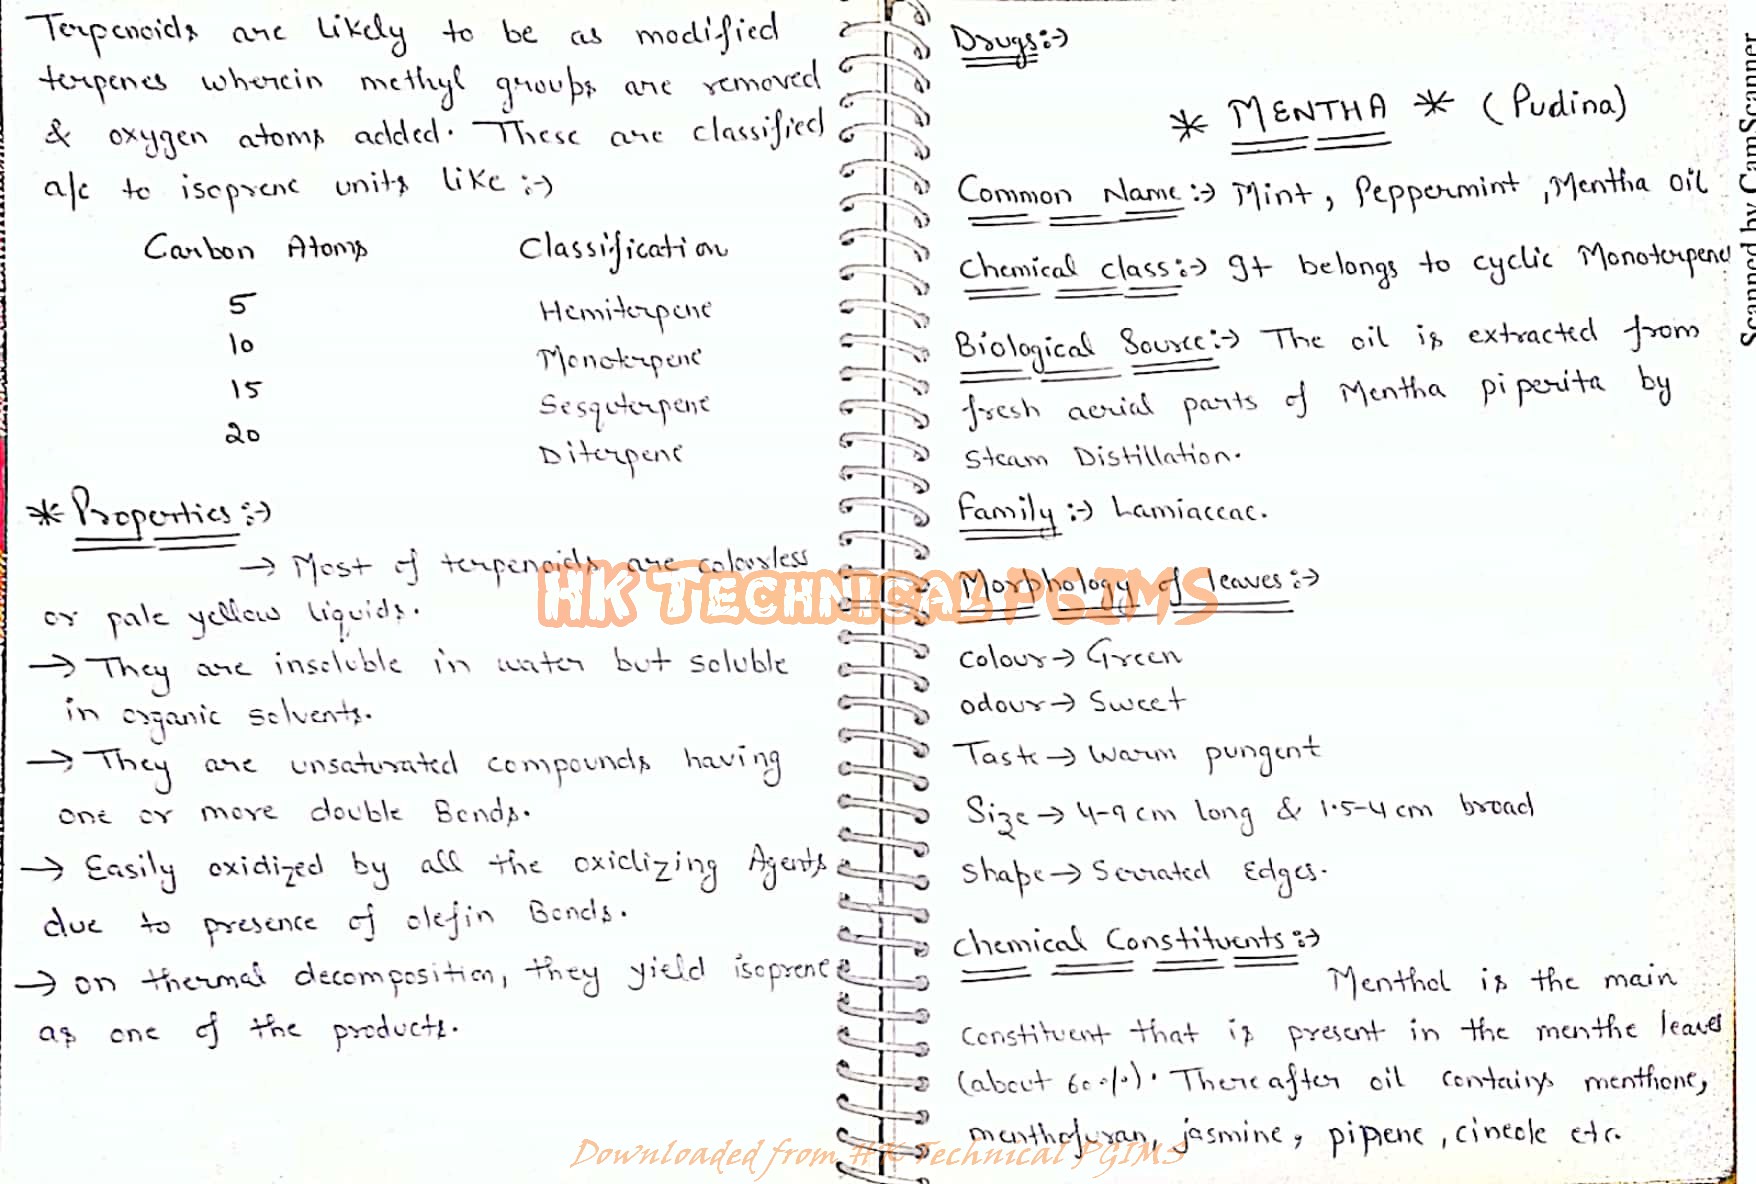 Terpenoids are likely to be as modified
terpenes wherein methyl groups are removed
& oxygen atoms added. These are classified
a/c to isoprene units like :->
Carbon Atoms Classification
5 Hemiterpene
10 Monoterpene
15 Sesquterpene
20 Diterpene
* Properties :->
→ Most of terpenoids are colourless
or pale yellow liquids.
→ They are insoluble in water but soluble
in organic solvents.
→ They are unsaturated compounds having
one or more double Bonds.
→ Easily oxidized by all the oxidizing Agents
due to presence of olefin Bonds.
→ on thermal decomposition, they yield isoprene
as one of the products.
Drugs :->
* MENTHA * (Pudina)
Common Name :-> Mint, Peppermint, Mentha oil
Chemical class :-> It belongs to cyclic Monoterpene
Biological Source :-> The oil is extracted from
fresh aerial parts of Mentha piperita by
Steam Distillation.
Family :-> Lamiaceae.
Morphology of leaves :->
Colour → Green
odour → Sweet
Taste → Warm pungent
Size → 4-9 cm long & 1.5-4 cm broad
Shape → Serrated Edges.
Chemical Constituents :->
Menthol is the main
constituent that is present in the menthe leaves
(about 60%). Thereafter oil contains menthone,
menthofuran, jasmine, pipiene, cineole etc.
HK Technical PGIMS
Downloaded from HK Technical PGIMS
Scanned by CamScanner